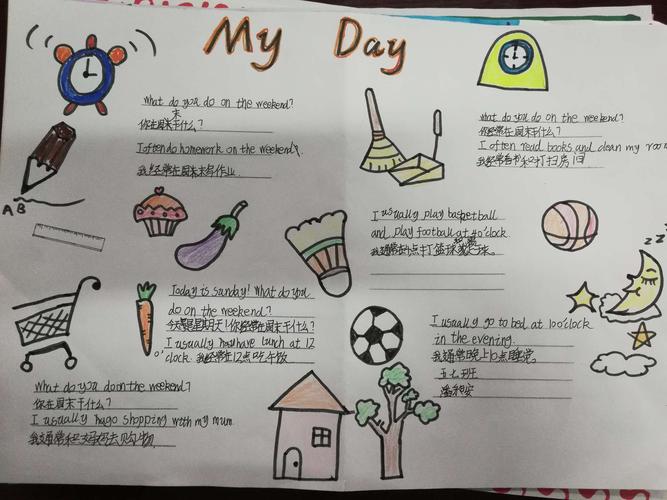 My Day
What do you do on the weekend?
末
你在周末干什么?
I often do homework on the weekend.
我经常在周末写作业.
What do you do on the weekend?
你经常在周末干什么?
I often read books and clean my room
我经常看书和打扫房间
A B
I usually play basketball
and play football at 4 o'clock
我通常在4点打篮球或踢足球。
Today is sunday! What do you
do on the weekend?
今天是星期天!你经常在周末干什么?
I usually have lunch at 12
o'clock. 我经常在12点吃午饭
I usually go to bed at 10 o'clock
in the evening.
我通常晚上10点睡觉.
五七班
What do you do on the weekend?
你在周末干什么?
I usually go shopping with my mum.
我通常和妈妈去购物
z z z